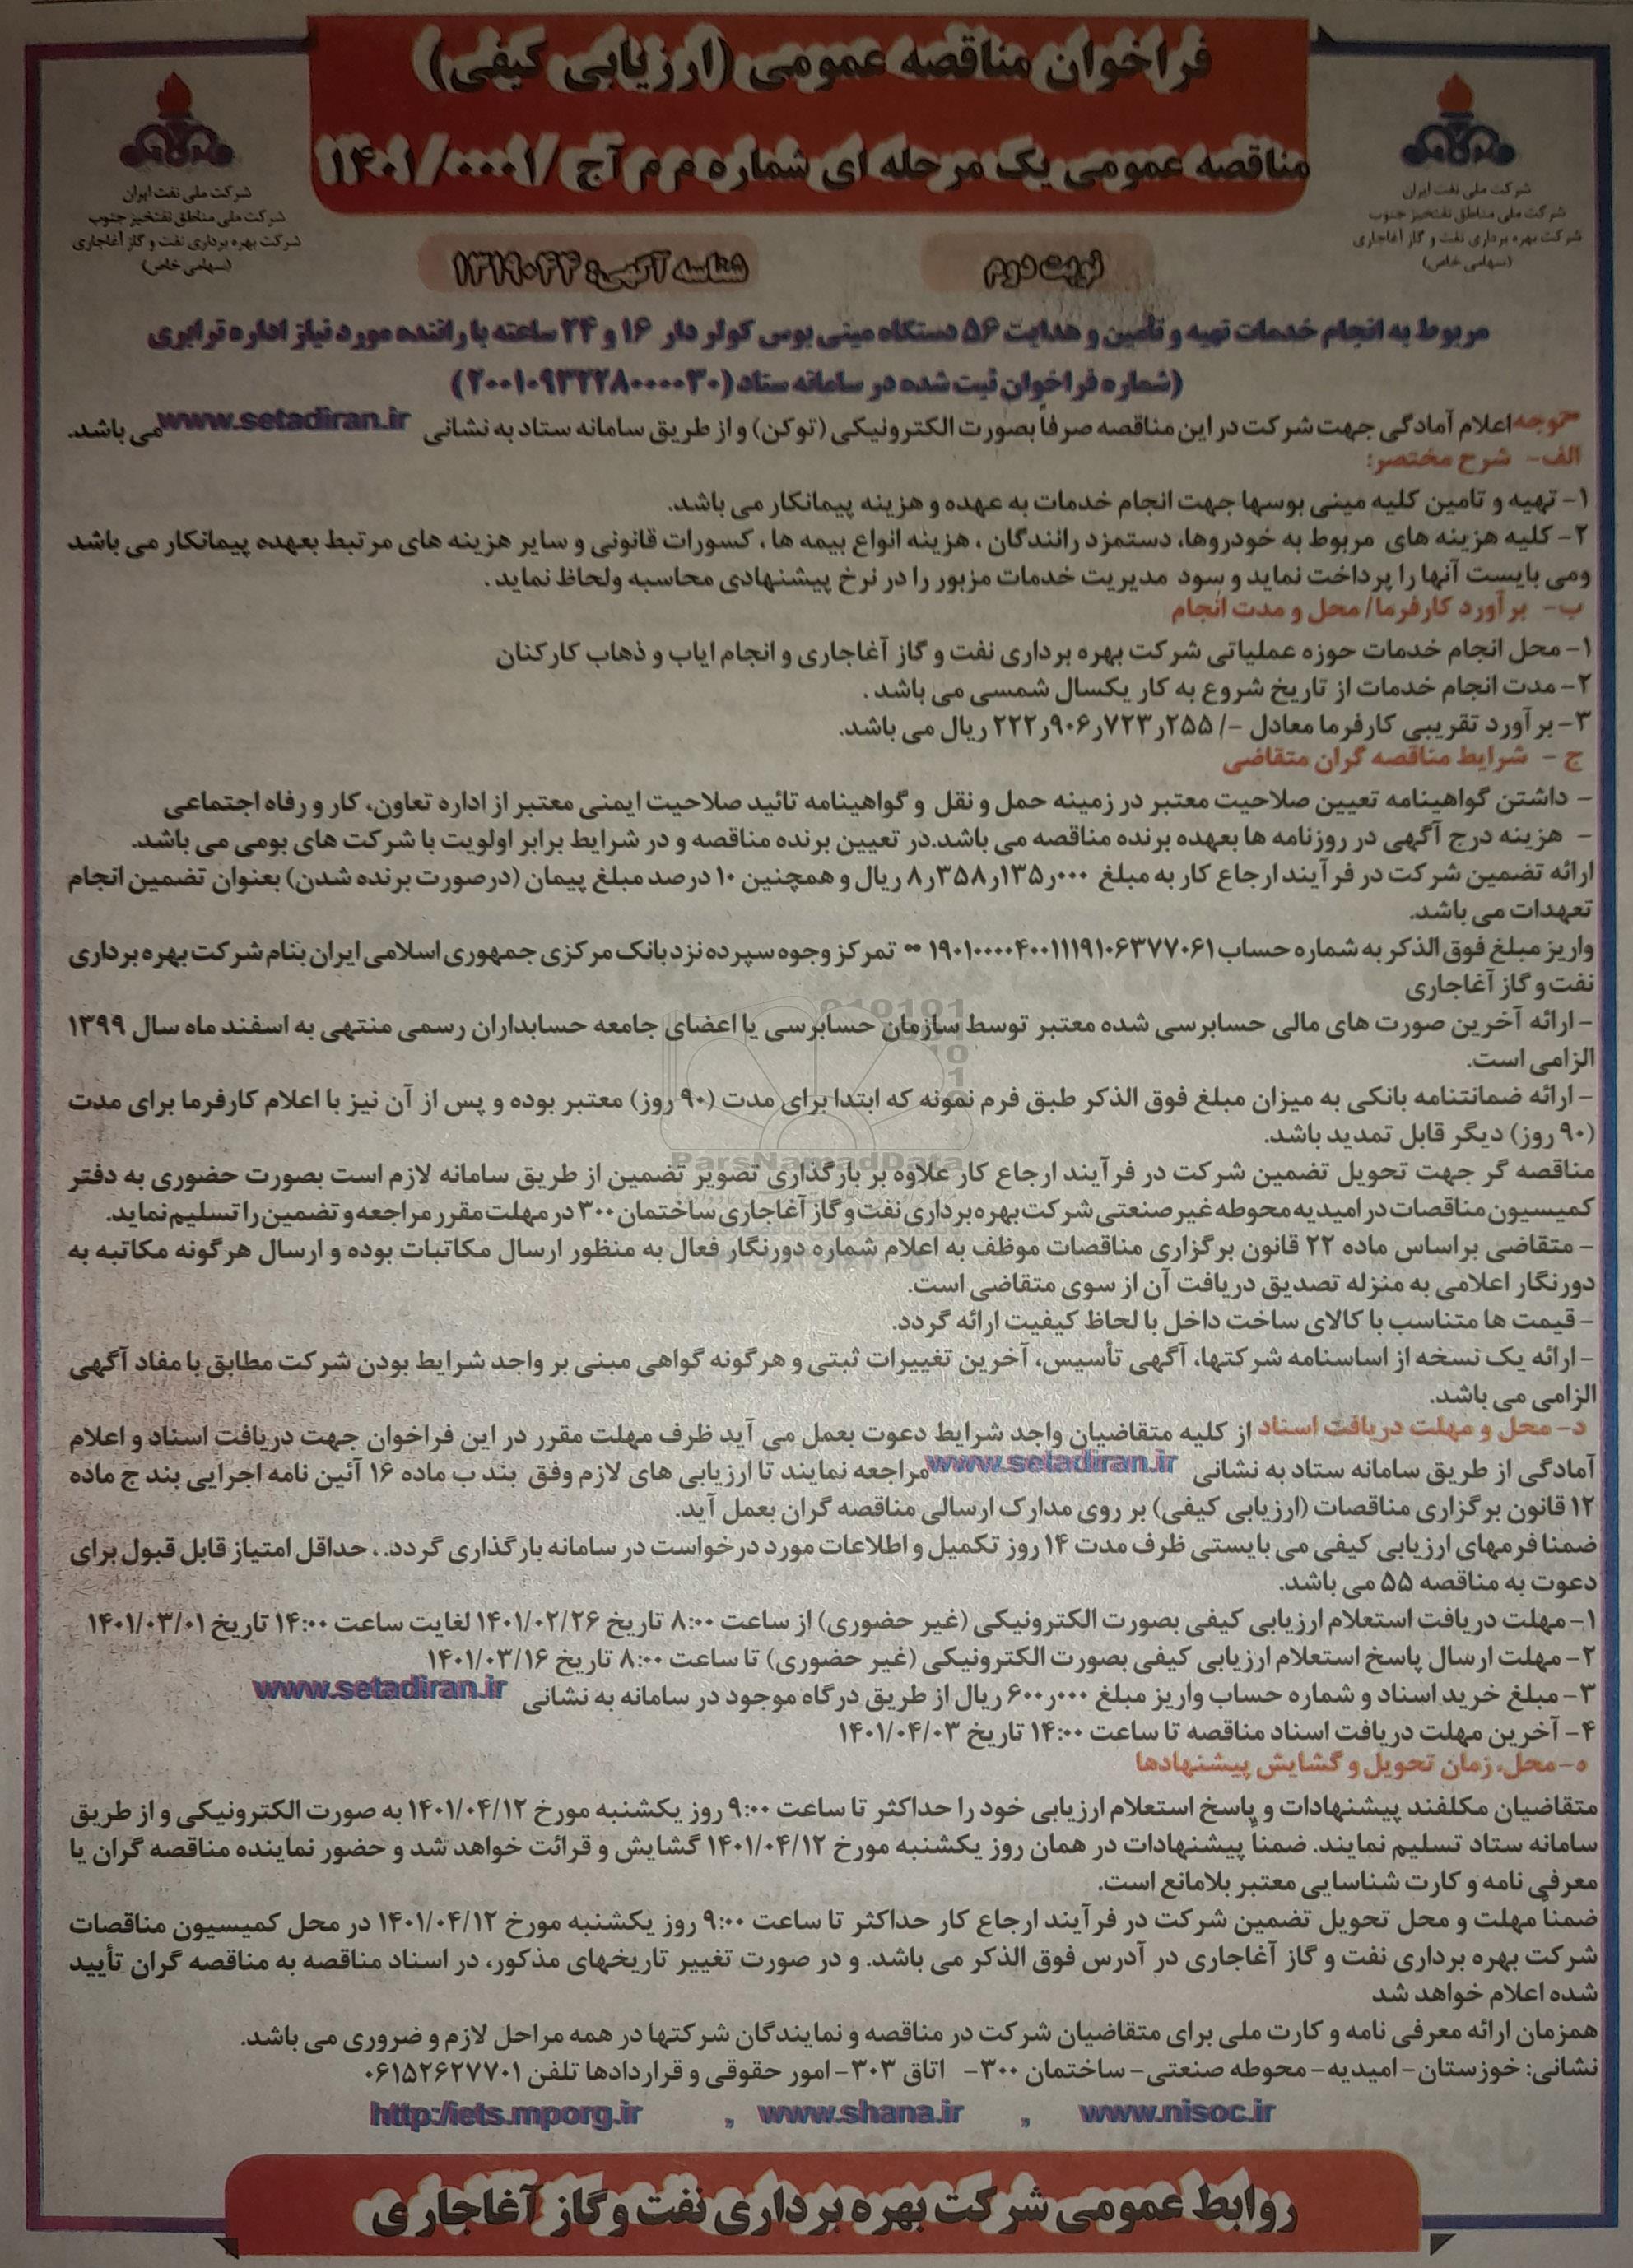 فراخوان مناقصه عمومی (ارزیابی کیفی)
مناقصه عمومی یک مرحله ای شماره م م آج /۱۴۰۱/۰۰۰۱
شرکت ملی نفت ایران
شرکت ملی مناطق نفتخیز جنوب
شرکت بهره برداری نفت و گاز آغاجاری
(سهامی خاص)
شرکت ملی نفت ایران
شرکت ملی مناطق نفتخیز جنوب
شرکت بهره برداری نفت و گاز آغاجاری
(سهامی خاص)
نوبت دوم
شناسه آگهی: ۱۳۱۹۰۴۴
مربوط به انجام خدمات تهیه و تأمین و هدایت ۵۶ دستگاه مینی بوس کولر دار ۱۶ و ۲۴ ساعته با راننده مورد نیاز اداره ترابری
(شماره فراخوان ثبت شده در سامانه ستاد (۲۰۰۱۰۹۳۲۲۸۰۰۰۰۳۰)
توجه اعلام آمادگی جهت شرکت در این مناقصه صرفاً بصورت الکترونیکی (توکن) و از طریق سامانه ستاد به نشانی www.setadiran.ir می باشد.
الف- شرح مختصر:
۱- تهیه و تامین کلیه مینی بوسها جهت انجام خدمات به عهده و هزینه پیمانکار می باشد.
۲- کلیه هزینه های مربوط به خودروها، دستمزد رانندگان ، هزینه انواع بیمه ها ، کسورات قانونی و سایر هزینه های مرتبط بعهده پیمانکار می باشد
ومی بایست آنها را پرداخت نماید و سود مدیریت خدمات مزبور را در نرخ پیشنهادی محاسبه ولحاظ نماید .
ب- برآورد کارفرما/ محل و مدت انجام
۱- محل انجام خدمات حوزه عملیاتی شرکت بهره برداری نفت و گاز آغاجاری و انجام ایاب و ذهاب کارکنان
۲- مدت انجام خدمات از تاریخ شروع به کار یکسال شمسی می باشد .
۳- برآورد تقریبی کارفرما معادل -/ ۲۲۲٫۹۰۶٫۷۲۳٫۲۵۵ ریال می باشد.
ج - شرایط مناقصه گران متقاضی
- داشتن گواهینامه تعیین صلاحیت معتبر در زمینه حمل و نقل و گواهینامه تائید صلاحیت ایمنی معتبر از اداره تعاون، کار و رفاه اجتماعی
- هزینه درج آگهی در روزنامه ها بعهده برنده مناقصه می باشد.در تعیین برنده مناقصه و در شرایط برابر اولویت با شرکت های بومی می باشد.
ارائه تضمین شرکت در فرآیند ارجاع کار به مبلغ ۸٫۳۵۸٫۱۳۵٫۰۰۰ ریال و همچنین ۱۰ درصد مبلغ پیمان (درصورت برنده شدن) بعنوان تضمین انجام
تعهدات می باشد.
واریز مبلغ فوق الذکر به شماره حساب ۱۹۰۱۰۰۰۰۴۰۰۱۱۱۹۱۰۶۳۷۷۰۶۱ تمرکز وجوه سپرده نزد بانک مرکزی جمهوری اسلامی ایران بنام شرکت بهره برداری
نفت و گاز آغاجاری
- ارائه آخرین صورت های مالی حسابرسی شده معتبر توسط سازمان حسابرسی یا اعضای جامعه حسابداران رسمی منتهی به اسفند ماه سال ۱۳۹۹
الزامی است.
- ارائه ضمانتنامه بانکی به میزان مبلغ فوق الذکر طبق فرم نمونه که ابتدا برای مدت (۹۰ روز) معتبر بوده و پس از آن نیز با اعلام کارفرما برای مدت
(۹۰ روز) دیگر قابل تمدید باشد.
ParsNamadData
مناقصه گر جهت تحویل تضمین شرکت در فرآیند ارجاع کار علاوه بر بارگذاری تصویر تضمین از طریق سامانه لازم است بصورت حضوری به دفتر
کمیسیون مناقصات در امیدیه محوطه غیر صنعتی شرکت بهره برداری نفت و گاز آغاجاری ساختمان ۳۰۰ در مهلت مقرر مراجعه و تضمین را تسلیم نماید.
- متقاضی براساس ماده ۲۲ قانون برگزاری مناقصات موظف به اعلام شماره دورنگار فعال به منظور ارسال مکاتبات بوده و ارسال هرگونه مکاتبه به
دورنگار اعلامی به منزله تصدیق دریافت آن از سوی متقاضی است.
- قیمت ها متناسب با کالای ساخت داخل با لحاظ کیفیت ارائه گردد.
- ارائه یک نسخه از اساسنامه شرکتها، آگهی تأسیس، آخرین تغییرات ثبتی و هرگونه گواهی مبنی بر واجد شرایط بودن شرکت مطابق با مفاد آگهی
الزامی می باشد.
د- محل و مهلت دریافت اسناد از کلیه متقاضیان واجد شرایط دعوت بعمل می آید ظرف مهلت مقرر در این فراخوان جهت دریافت اسناد و اعلام
آمادگی از طریق سامانه ستاد به نشانی www.setadiran.ir مراجعه نمایند تا ارزیابی های لازم وفق بند ب ماده ۱۶ آئین نامه اجرایی بند ج ماده
۱۲ قانون برگزاری مناقصات (ارزیابی کیفی) بر روی مدارک ارسالی مناقصه گران بعمل آید.
ضمنا فرمهای ارزیابی کیفی می بایستی ظرف مدت ۱۴ روز تکمیل و اطلاعات مورد درخواست در سامانه بارگذاری گردد. ، حداقل امتیاز قابل قبول برای
دعوت به مناقصه ۵۵ می باشد.
۱- مهلت دریافت استعلام ارزیابی کیفی بصورت الکترونیکی (غیر حضوری) از ساعت ۸:۰۰ تاریخ ۱۴۰۱/۰۲/۲۶ لغایت ساعت ۱۴:۰۰ تاریخ ۱۴۰۱/۰۳/۰۱
۲- مهلت ارسال پاسخ استعلام ارزیابی کیفی بصورت الکترونیکی (غیر حضوری) تا ساعت ۸:۰۰ تاریخ ۱۴۰۱/۰۳/۱۶
۳- مبلغ خرید اسناد و شماره حساب واریز مبلغ ۶۰۰٫۰۰۰ ریال از طریق درگاه موجود در سامانه به نشانی www.setadiran.ir
۴- آخرین مهلت دریافت اسناد مناقصه تا ساعت ۱۴:۰۰ تاریخ ۱۴۰۱/۰۴/۰۳
ه-محل، زمان تحویل و گشایش پیشنهادها
متقاضیان مکلفند پیشنهادات و پاسخ استعلام ارزیابی خود را حداکثر تا ساعت ۹:۰۰ روز یکشنبه مورخ ۱۴۰۱/۰۴/۱۲ به صورت الکترونیکی و از طریق
سامانه ستاد تسلیم نمایند. ضمناً پیشنهادات در همان روز یکشنبه مورخ ۱۴۰۱/۰۴/۱۲ گشایش و قرائت خواهد شد و حضور نماینده مناقصه گران یا
معرفی نامه و کارت شناسایی معتبر بلامانع است.
ضمناً مهلت و محل تحویل تضمین شرکت در فرآیند ارجاع کار حداکثر تا ساعت ۹:۰۰ روز یکشنبه مورخ ۱۴۰۱/۰۴/۱۲ در محل کمیسیون مناقصات
شرکت بهره برداری نفت و گاز آغاجاری در آدرس فوق الذکر می باشد. و در صورت تغییر تاریخهای مذکور، در اسناد مناقصه به مناقصه گران تأیید
شده اعلام خواهد شد
همزمان ارائه معرفی نامه و کارت ملی برای متقاضیان شرکت در مناقصه و نمایندگان شرکتها در همه مراحل لازم و ضروری می باشد.
نشانی: خوزستان- امیدیه- محوطه صنعتی- ساختمان ۳۰۰- اتاق ۳۰۳- امور حقوقی و قراردادها تلفن ۰۶۱۵۲۶۲۷۷۰۱
www.nisoc.ir , www.shana.ir , http:/iets.mporg.ir
روابط عمومی شرکت بهره برداری نفت و گاز آغاجاری